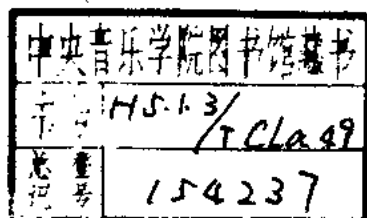 中央音乐学院图书馆藏书
书号 H5.1.3/TCLa49
总登记号 154237